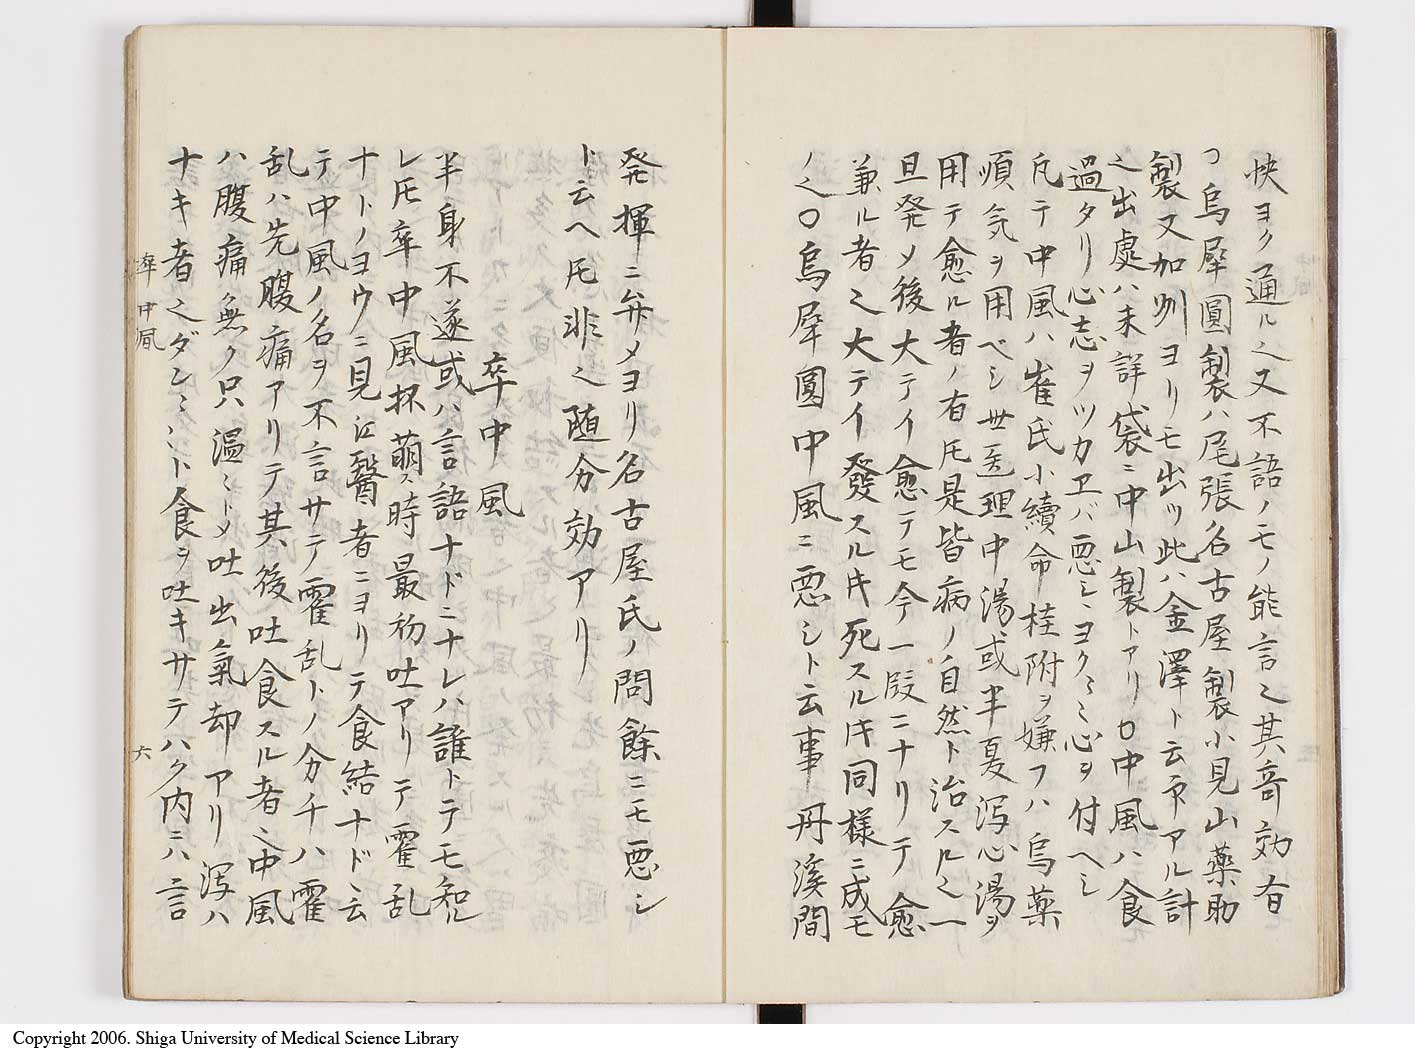 快ヨク通ル之又不語ノモノ能言之其奇効有
フ烏犀圓製ハ尾張名古屋製小見山薬助
製又加州ヨリモ出ツ此ハ金澤ト云印アル計
之出處ハ未詳袋ニ中山製トアリ〇中風ハ食
過タリ心志ヲツカヱバ悪シヽヨク〻心ヲ付ヘシ
凡テ中風ハ崔氏小續命桂附ヲ嫌フハ烏薬
順気ヲ用ベシ世医理中湯或半夏泻心湯ヲ
用テ愈ル者ノ有㐂是皆病ノ自然ト治スル之一
旦発メ後大テイ愈テモ今一段ニナリテ愈
兼ル者之大テイ發スル𪜈死スル𪜈同様ニ成モ
ノ之〇烏犀圓中風ニ悪シト云事丹溪間
発揮ニ弁メヨリ名古屋氏ノ問餘ニモ悪シ
ト云ヘ𪜈非之随分効アリ
卒中風
半身不遂或ハ言語ナドニナレハ誰トテモ知ル
レ𪜈卒中風抔萌ス時最初吐アリテ霍乱
ナトノヨウニ見江醫者ニヨリテ食結ナド云
テ中風ノ名ヲ不言サテ霍乱トノ分チハ霍
乱ハ先腹痛アリテ其後吐食スル者之中風
ハ腹痛無ク只温〻トメ吐出氣却アリ泻ハ
ナキ者之ダン〻ト食ヲ吐キサテハク内ニハ言
卒中風
六
Copyright 2006. Shiga University of Medical Science Library